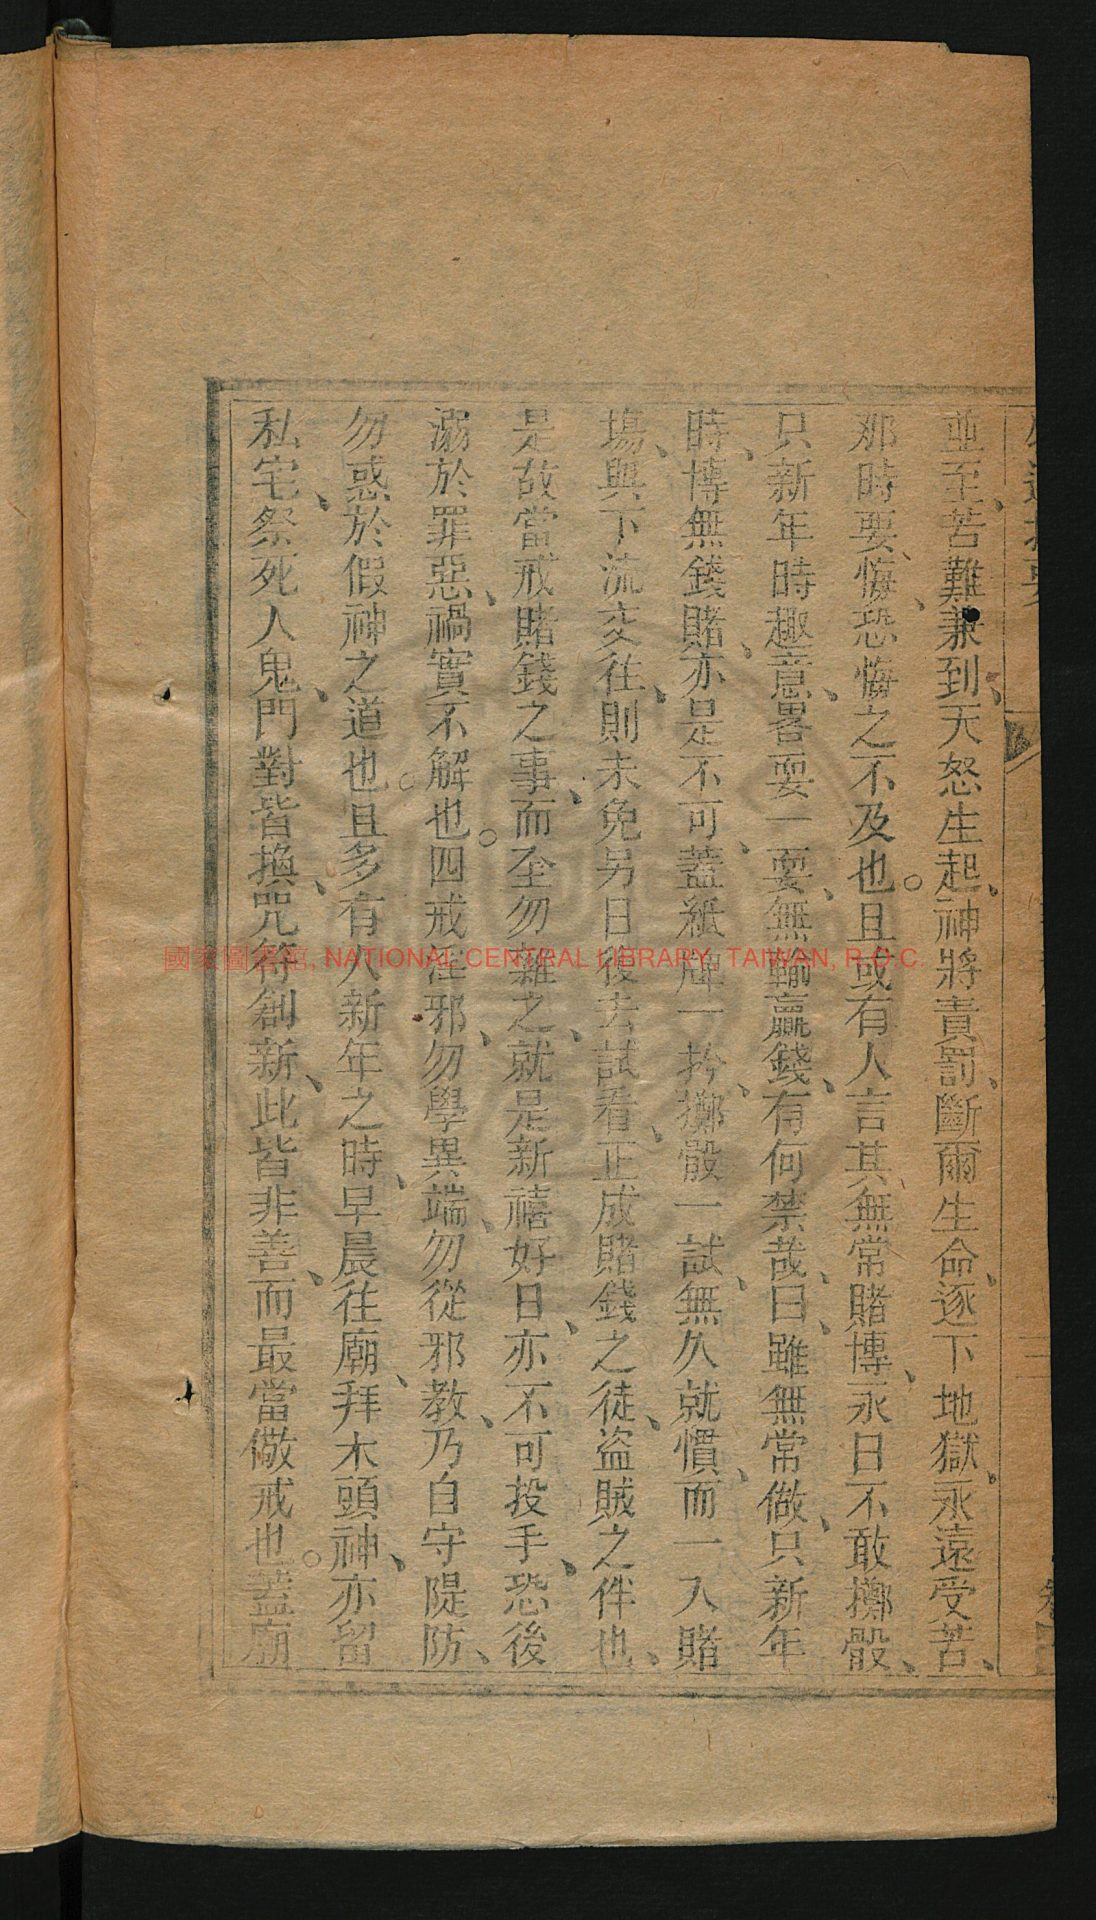 並至、苦難兼到、天怒生起、神將責罰、斷爾生命、逐下地獄、永遠受苦、
那時要悔、恐悔之不及也。且或有人言其無常賭博、永日不敢擲骰、
只新年時趣意、畧耍一耍、無輸贏錢、有何禁哉、曰、雖無常做、只新年
時、博無錢賭、亦是不可、蓋紙牌一拎、擲骰一試、無久就慣、而一入賭
塲、與下流交往、則未免另日後去、試看正成賭錢之徒、盜賊之件也、
是故當戒賭錢之事、而至勿雜之、就是新禧好日、亦不可投手、恐後
溺於罪惡、禍實不解也。四戒淫邪、勿學異端、勿從邪教、乃自守隄防、
勿惑於假神之道也。且多有人新年之時、早晨往廟、拜木頭神、亦留
私宅、祭死人鬼、門對皆換、咒符創新、此皆非善、而最當儆戒也。蓋廟
國家圖書館, NATIONAL CENTRAL LIBRARY, TAIWAN, R.O.C.